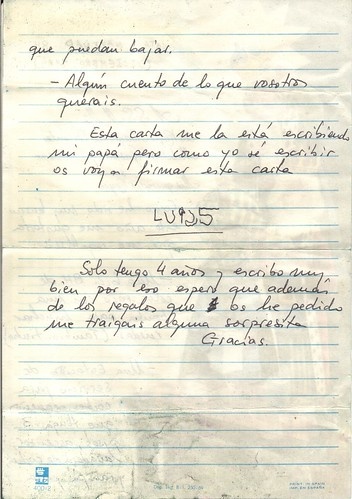 que puedan bajar.
- Algún cuento de lo que vosotros
querais.
Esta carta me la está escribiendo
mi papá pero como yo sé escribir
os voy a firmar esta carta
LUIS
Solo tengo 4 años y escribo muy
bien por eso espero que además
de los regalos que os he pedido
me traigais alguna sorpresita
Gracias.